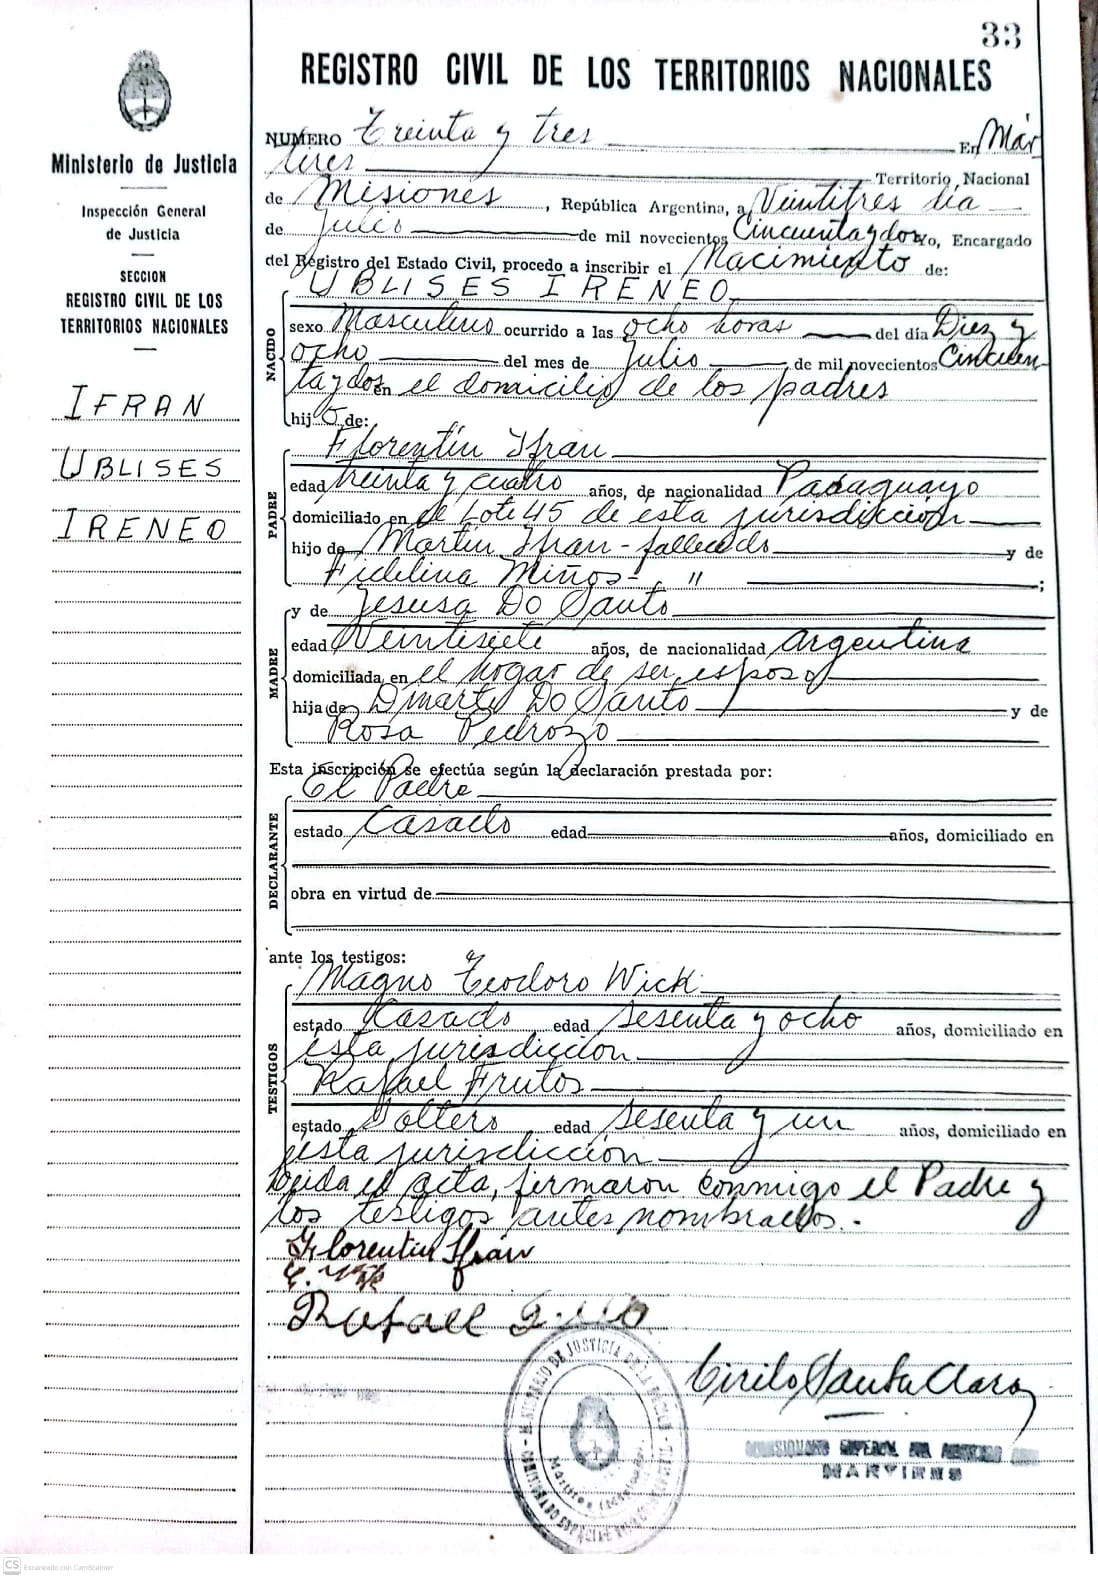 33
REGISTRO CIVIL DE LOS TERRITORIOS NACIONALES
Ministerio de Justicia
Inspección General
de Justicia
SECCION
REGISTRO CIVIL DE LOS
TERRITORIOS NACIONALES
IFRAN
UBLISES
IRENEO
NUMERO Treinta y tres En Már
tires Territorio Nacional
de Misiones, República Argentina, a Veintitres día
de Julio de mil novecientos Cincuentaydos yo, Encargado
del Registro del Estado Civil, procedo a inscribir el Nacimiento de:
NACIDO
UBLISES IRENEO
sexo Masculino ocurrido a las ocho horas del día Diez y
ocho del mes de Julio de mil novecientos Cincuen
taydos en el domicilio de los padres
hijo de:
PADRE
Florentín Ifran
edad treinta y cuatro años, de nacionalidad Paraguayo
domiciliado en el Lote 45 de esta jurisdicción
hijo de Martin Ifran - fallecido y de
Fidelina Miños - " ;
MADRE
y de Jesusa Do Santo
edad Veintisiete años, de nacionalidad argentina
domiciliada en el hogar de ser esposo
hija de Do Santo y de
Rosa Pedrozo
Esta inscripción se efectúa según la declaración prestada por:
DECLARANTE
El Padre
estado Casado edad años, domiciliado en
obra en virtud de
ante los testigos:
TESTIGOS
Magno Teodoro Wick
estado Casado edad sesenta y ocho años, domiciliado en
esta jurisdicción
Rafael Frutos
estado Soltero edad sesenta y un años, domiciliado en
esta jurisdicción
Leida el acta, firmaron conmigo el Padre y
los testigos antes nombrados.-
Florentin Ifran
Rafael
Cirilo Santa Clara
MARTIRES
CS Escaneado con CamScanner